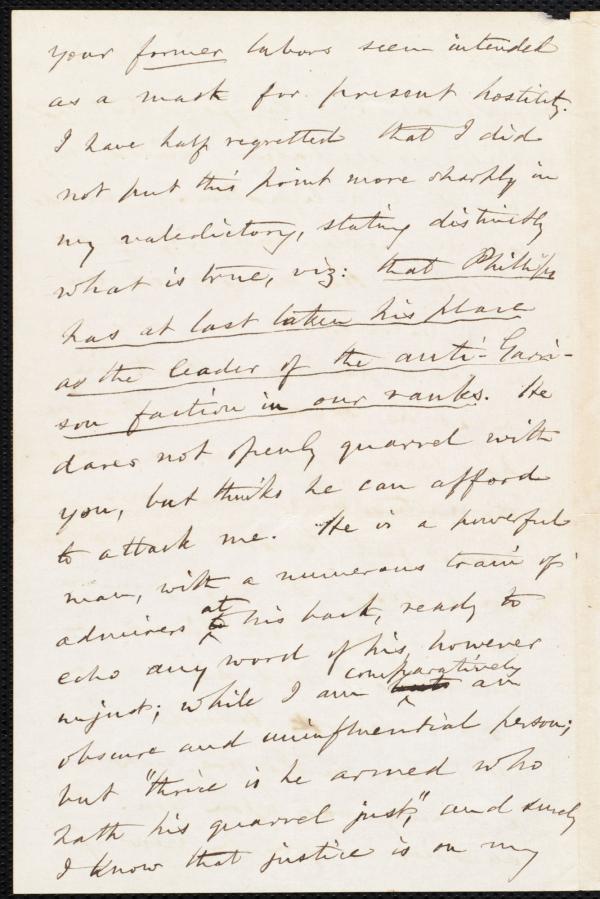 your former labors seem intended
as a mask for present hostility.
I have half regretted that I did
not put this point more sharply in
my valedictory, stating distinctly
what is true, viz: that Phillips
has at last taken his place
as the leader of the anti-Garri-
son faction in our ranks. He
dares not openly quarrel with
you, but thinks he can afford
to attack me. He is a powerful
man, with a numerous train of
admirers at his back, ready to
echo any word of his, however
unjust; while I am comparatively an
obscure and uninfluential person;
but "thrice is he armed who
hath his quarrel just," and surely
I know that justice is on my